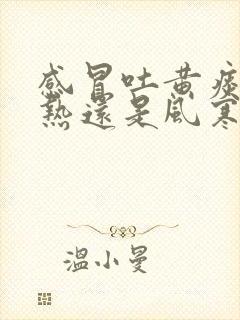 感冒吐黄痰
熱還是風寒
溫小曼